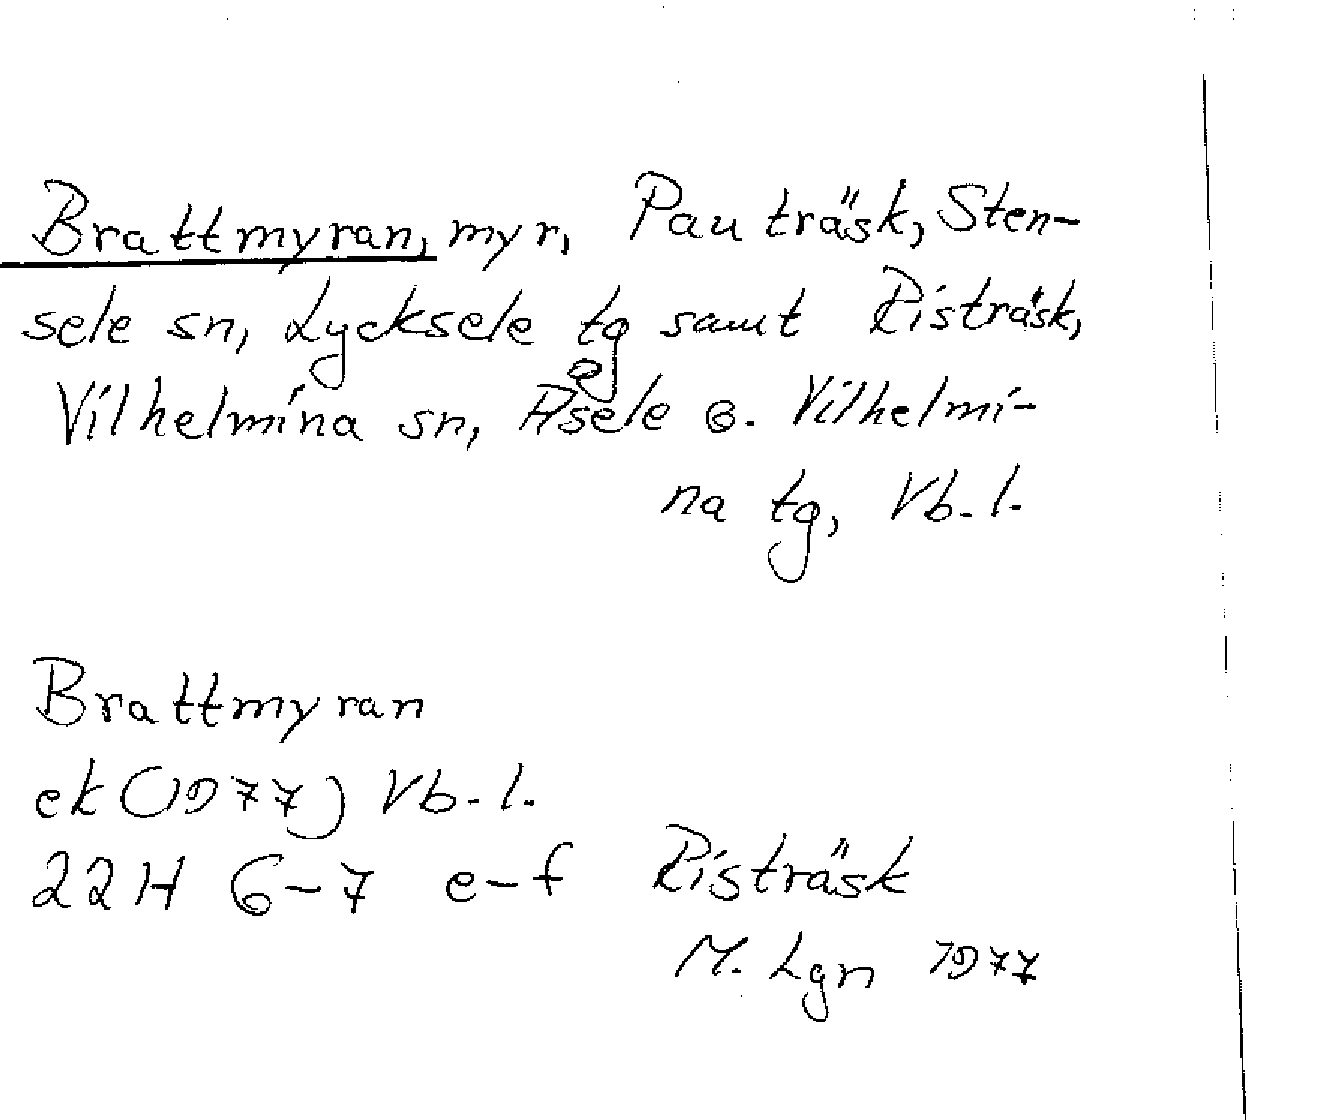 Brattmyran, myr, Pauträsk, Sten-
sele sn, Lycksele tg samt Risträsk,
Vilhelmina sn, Åsele o. Vilhelmi-
na tg, Vb. l.
Brattmyran
ek (1977) Vb. l.
22H 6-7 e-f Risträsk
M. Lgn 1977